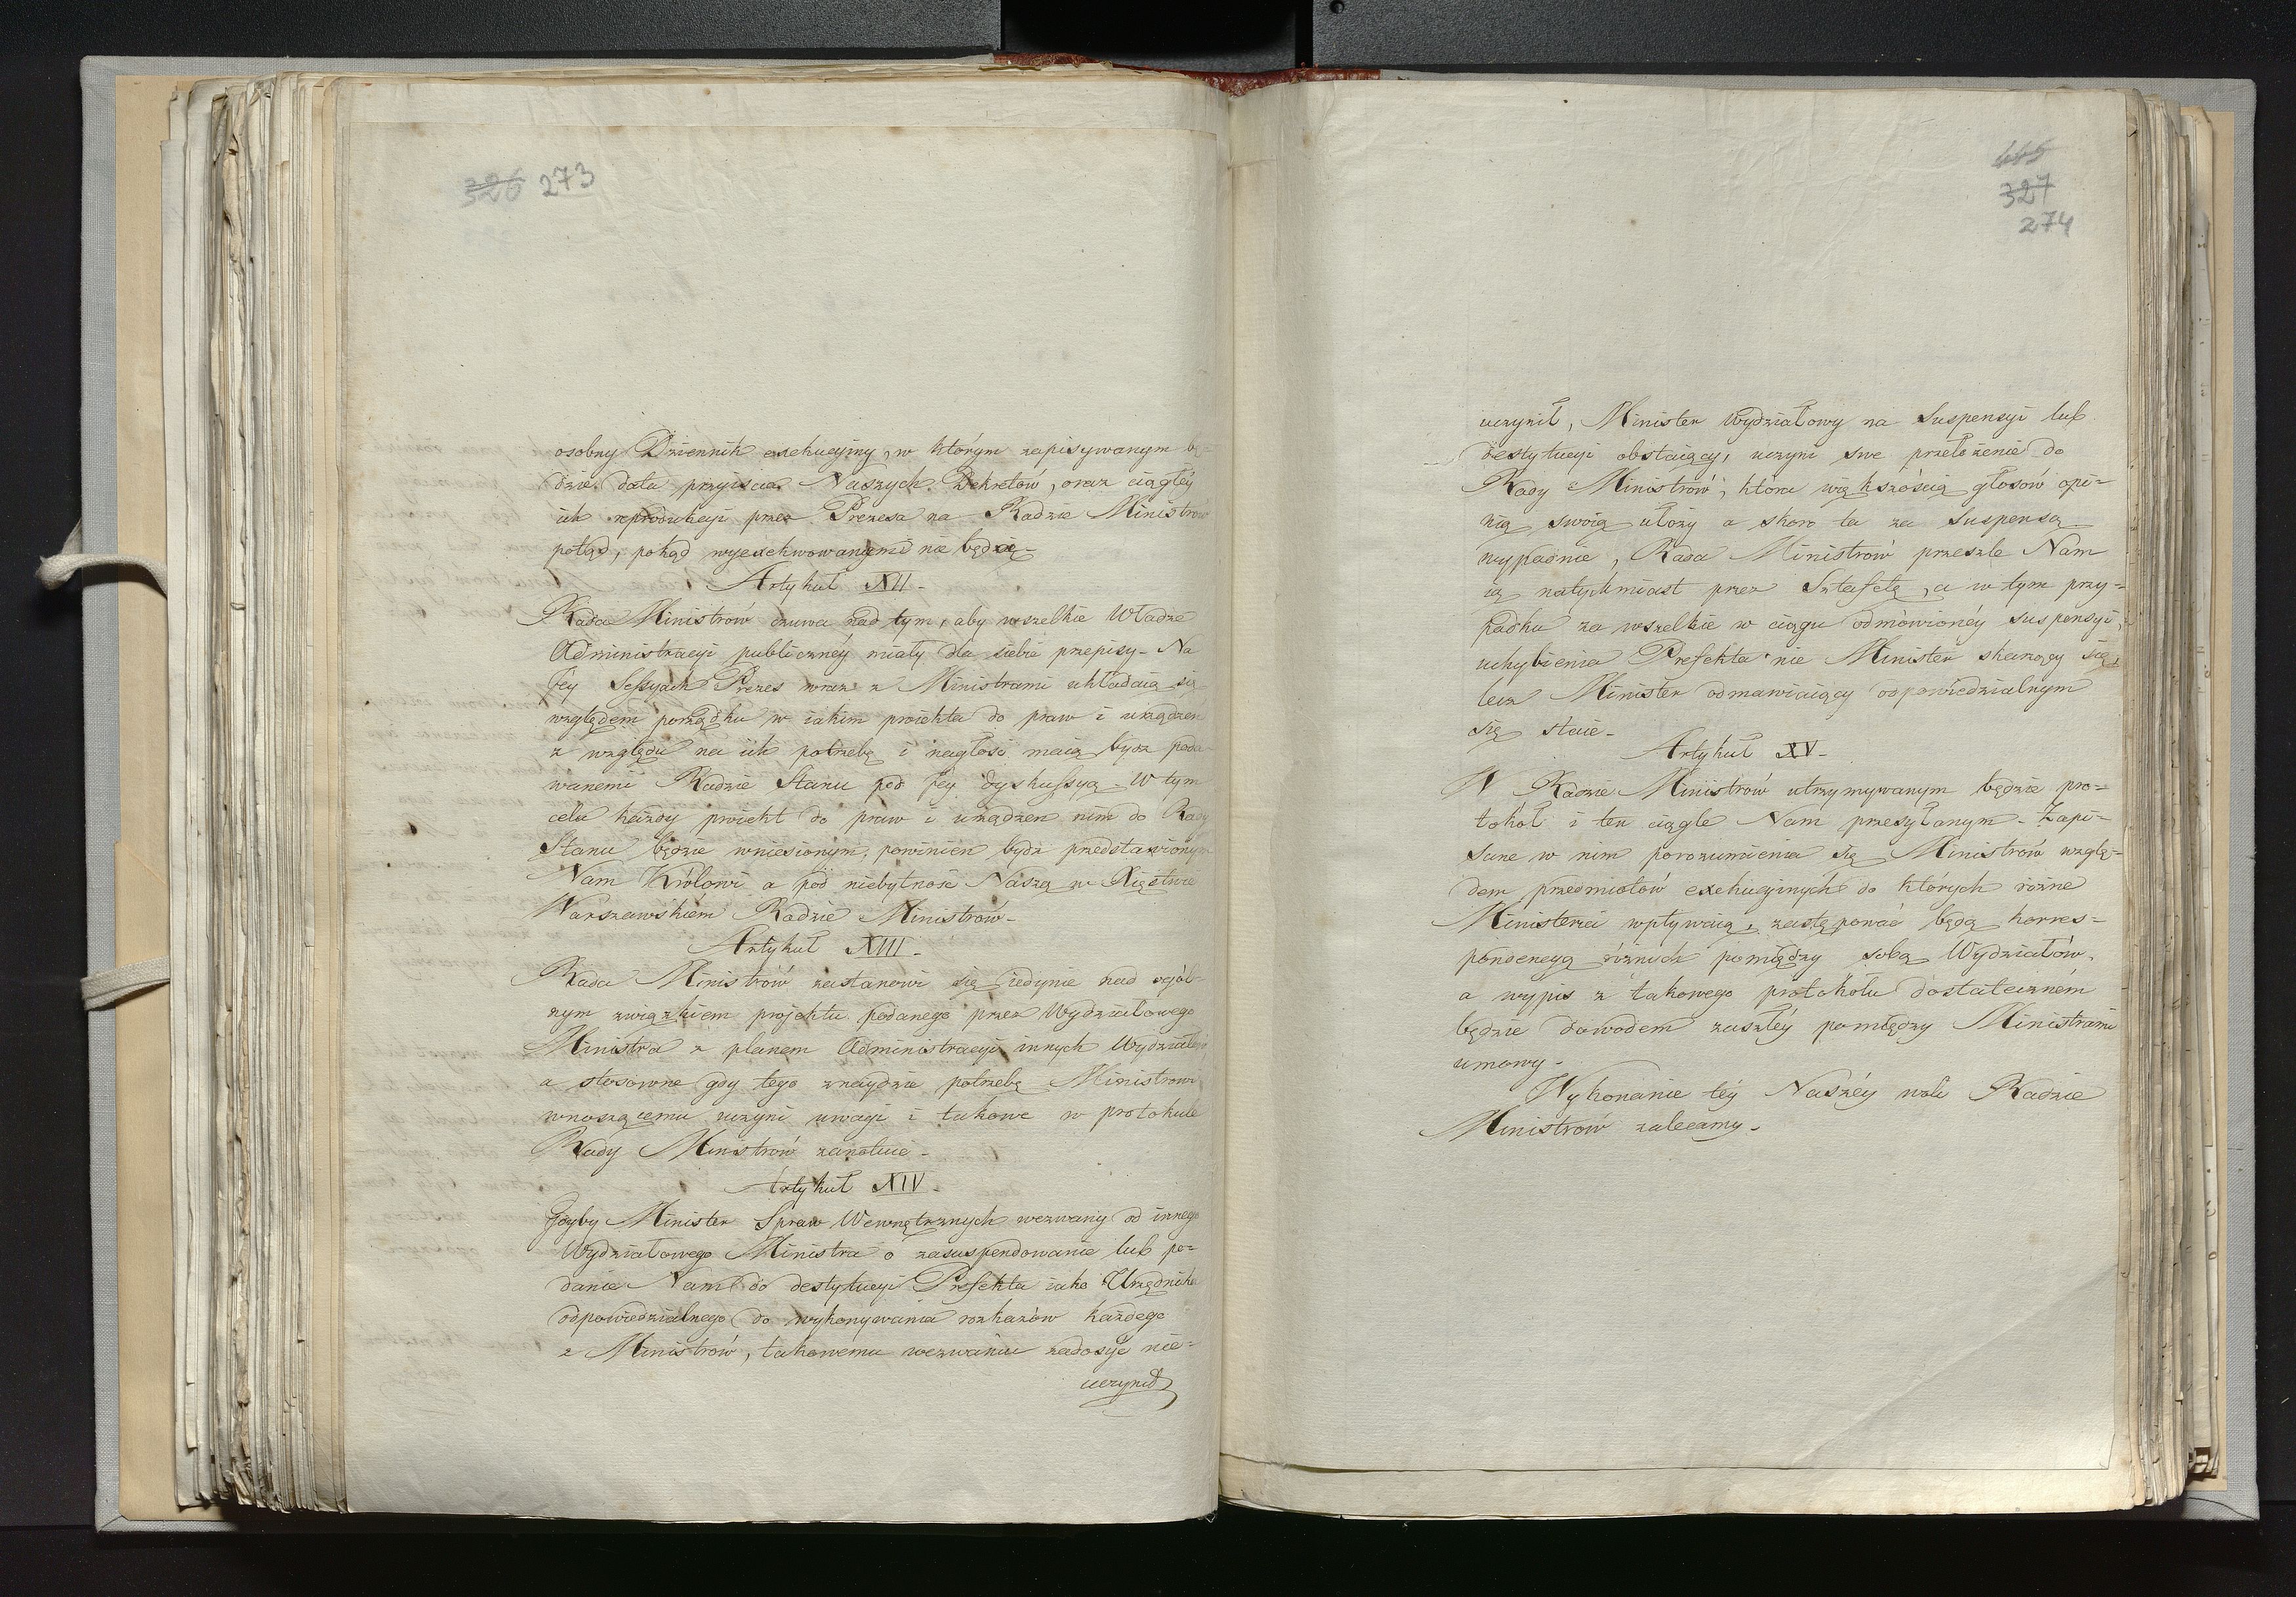 326 273
osobny Dziennik exekucyiny, w którym zapisywanym bę=
dzie data przyiścia Naszych Dekretów, oraz ciągłéy
ich reprodukcyi przez Prezesa na Radzie Ministrów
potąd, pokąd wyexekwowanemi nie będą.
Artykuł XII.
Rada Ministrów czuwa nad tym, aby wszelkie Władze
Administracyi publicznéy miały dla siebie przepisy. Na
Jey Sessyach Prezes wraz z Ministrami układaią się
względem porządku w iakim proiekta do praw i urządzeń
z względu na ich potrzebę i nagłość maią bydź poda
wanemi Radzie Stanu pod Jey dyskussyą. W tym
celu każdy proiekt do praw i urządzeń nim do Rady
Stanu będzie wniesionym, powinien bydź przedstawionym
Nam Królowi a pod niebytność Naszą w Xięstwie
Warszawskiém Radzie Ministrów.
Artykuł XIII.
Rada Ministrów zastanowi się iedynie nad ogól=
nym związkiem projektu podanego przez Wydziałowego
Ministra z planem Administracyi innych Wydziałów
a stosowne gdy tego znaydzie potrzebę Ministrowi
wnoszącemu uczyni uwagi i takowe w protokule
Rady Ministrów zanotuie.
Artykuł XIV.
Gdyby Minister Spraw Wewnętrznych wezwany od innego
Wydziałowego Ministra o zasuspendowanie lub po=
danie Nam do destytucyi Prefekta iako Urzędnika
odpowiedzialnego do wykonywania rozkazów każdego
z Ministrów, takowemu wezwaniu zadosyć nie=
uczynił
445
327
274
uczynił, Minister Wydziałowy na Suspensyi lub
destytucyi obstaiący, uczyni swe przełożenie do
Rady Ministrów, która większością głosów opi=
nią swoią ułoży a skoro ta za Suspensą
wypadnie, Rada Ministrów przeszle Nam
ią natychmiast przez Sztafetę, a w tym przy=
padku za wszelkie w ciągu odmówionéy suspensyi,
uchybienia Prefekta nie Minister skarżący się,
lecz Minister odmawiaiący odpowiedzialnym
się staie.
Artykuł XV.
W Radzie Ministrów utrzymywanym będzie pro=
tokół i ten ciągle Nam przesyłanym. Zapi=
sane w nim porozumienia się Ministrów wzglę=
dem przedmiotów exekucyinych do których różne
Ministeria wpływaią, zastępować będą korres=
pondencyą różnych pomiędzy sobą Wydziałów,
a wypis z takowego protokółu dostateczném
będzie dowodem zaszłéy pomiędzy Ministrami
umowy.
Wykonanie téy Naszéy woli Radzie
Ministrów zalecamy.